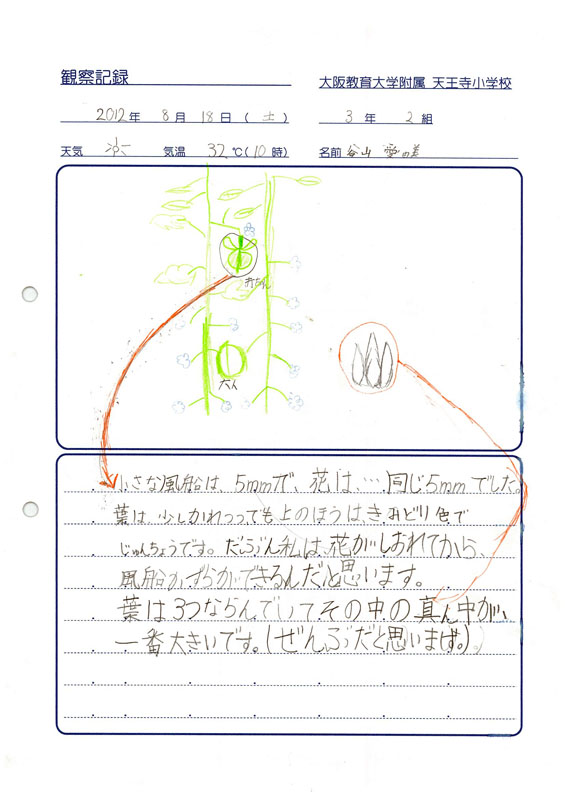 観察記録
大阪教育大学附属 天王寺小学校
2012年 8月 18日 (土)
3年 2組
天気 気温 32℃(10時)
名前 谷山 愛の美
赤ちゃん
大人
小さな風船は、5mmで、花は、…同じ5mmでした。
葉は、少しかれつつっても上のほうは、きみどり色で
じゅんちょうです。だぶん私は、花がしおれてから、
風船かずらができるんだと思います。
葉は3つならんでいてその中の真ん中が、
一番大きいです。(ぜんぶだと思います。)